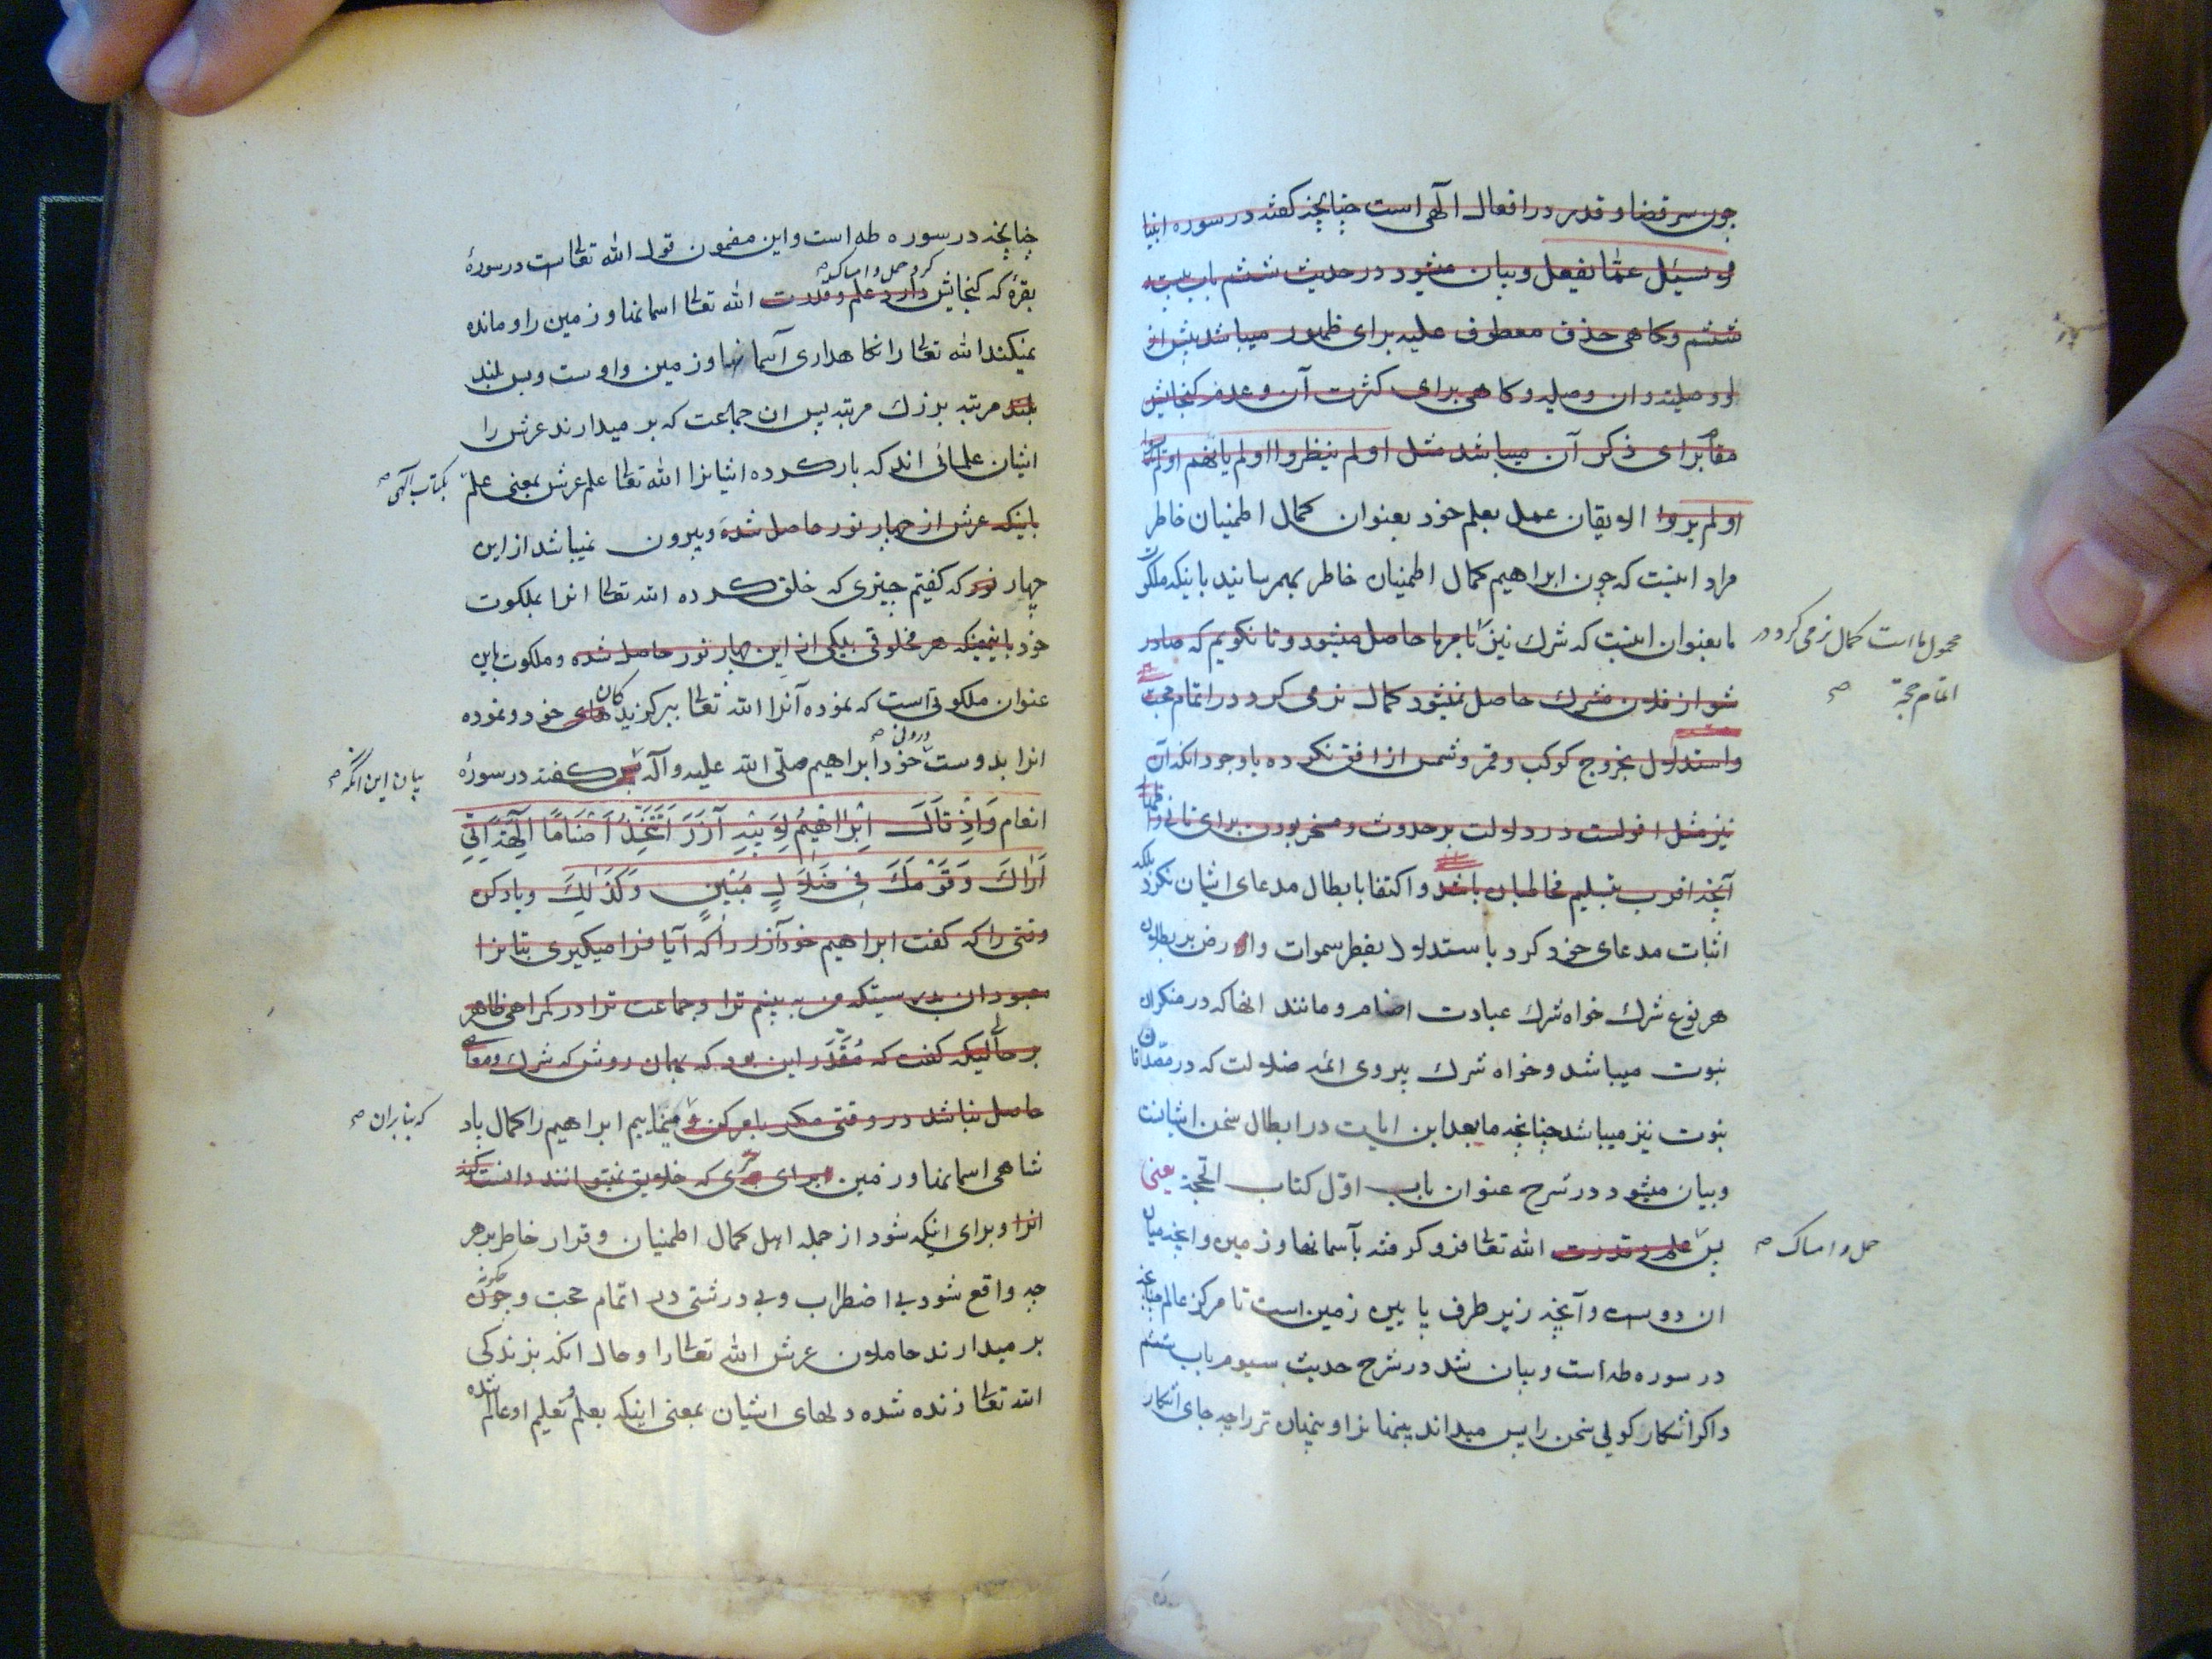 چون سر قضا و قدر در افعال الهی است چنانچه گفته در سوره انبیا
لا یسئل عما یفعل و بیان میشود در حدیث ششم باب بیست
ششم و گاهی حذف معطوف علیه برای ظهور میباشد پیش از
لو وصلیه و ان وصلیه و گاهی برای کثرت آن و عدم گنجایش
مقام برای ذکر آن میباشد مثل اولم ینظروا اولم یاتهم اولم
اولم یروا الایقان عمل بعلم خود بعنوان کمال اطمینان خاطر
مراد اینست که چون ابراهیم کمال اطمینان خاطر بهم رسانید باینکه ملکوت
ما بعنوان اینست که شرک نیز با مر ما حاصل میشود و تا نگوییم که صادر
محمول ما است کمال نرمی کرد در
شو از فلان مشرک حاصل نمیشود کمال نرمی کرد در اتمام حجت
اتمام حجة صح
و استدلال بخروج کوکب و قمر و شمس از افق نکرده با وجود آنکه آن
نیز مثل افولست در دلالت بر حدوث و مسخر بودن برای ثانی
آنچه اقرب بتسلیم مخاطبان باشد و اکتفا بابطال مدعای ایشان نکرد بلکه
اثبات مدعای خود کرد باستدلال بفطر سموات و ارض بر بطلان
هر نوع شرک خواه شرک عبادت اصنام و مانند آنها که در منکران
نبوت میباشد و خواه شرک پیروی ائمه ضلالت که در مصدقان
نبوت نیز میباشد چنانچه ما بعد این ایات در ابطال سخن ایشانست
و بیان میشود در شرح عنوان باب اول کتاب الحجة یعنی
پس علم و قدرت الله تعالی فرو گرفته بآسمانها و زمین و آنچه میان
حمل و امساک صح
ان دوست و آنچه زیر طرف پایین زمین است تا مرکز عالم چنانچه
در سوره طه است و بیان شد در شرح حدیث سیوم باب ششم
و اگر آشکار کویی سخن را پس میداند پنهانرا و پنهان تر را چه جای آشکار
چنانچه در سوره طه است و این مضمون قول الله تعالی است در سورۀ
کرد حمل و امساک صح
بقره که گنجایش دارد علم و قدرت الله تعالی اسمانها و زمین را و مانده
نمیکند الله تعالی را نگاهداری آسمانها و زمین و اوست و بس بلند
بلند مرتبه بزرک مرتبه پس ان جماعت که بر میدارند عرش را
ایشان علمائی اند که بار کرده ایشانرا الله تعالی علم عرش بمعنی علم
بکتاب الهی صح
باینکه عرش از چهار نور حاصل شده و بیرون نمیباشد از این
چهار نور که گفتیم چیزی که خلق کرده الله تعالی انرا بملکوت
خود باینمعنیکه هر مخلوقی بیکی از این چهار نور حاصل شده و ملکوت باین
عنوان ملکوتی است که نموده آنرا الله تعالی ببرکزیدکان های خود و نموده
انرا بدوست خود ابراهیم صلی الله علیه و آله پس گفته در سورۀ
بیان این انکه صح
انعام وَاِذْ قَالَ اِبْرٰاهِیمُ لِاَبِیهِ آزَرَ اَتَتَّخِذُ اَصْنَامًا آلِهَةً اِنِّی
اَرٰاكَ وَقَوْمَكَ فِی ضَلَالٍ مُبِینٍ وَكَذٰلِكَ و یاد کن
وقتی را که گفت ابراهیم خود آزر را که آیا فرا میگیری بتانرا
معبودان بدرستیکه من به بینم ترا و جماعت ترا در گمراهی ظاهر
بر حالیکه گفت که مقدر این بود که بهمان روش که شرک و معاصی
حاصل نباشد در وقتی مگر بامر کن مینماییم ابراهیم را کمال پاد
که بنابران صح
شاهی اسمانها و زمین برای چیزی که خلایق نمیتوانند دانست
انرا و برای اینکه شود از جمله اهل کمال اطمینان و قرار خاطر بهر
چه واقع شود بی اضطراب و بی درشتی در اتمام حجت و چون چگونه
بر میدارند حاملان عرش الله تعالی را و حال انکه بزندگی
الله تعالی زنده شده دلهای ایشان بمعنی اینکه بعلم و تعلیم او عالم شده